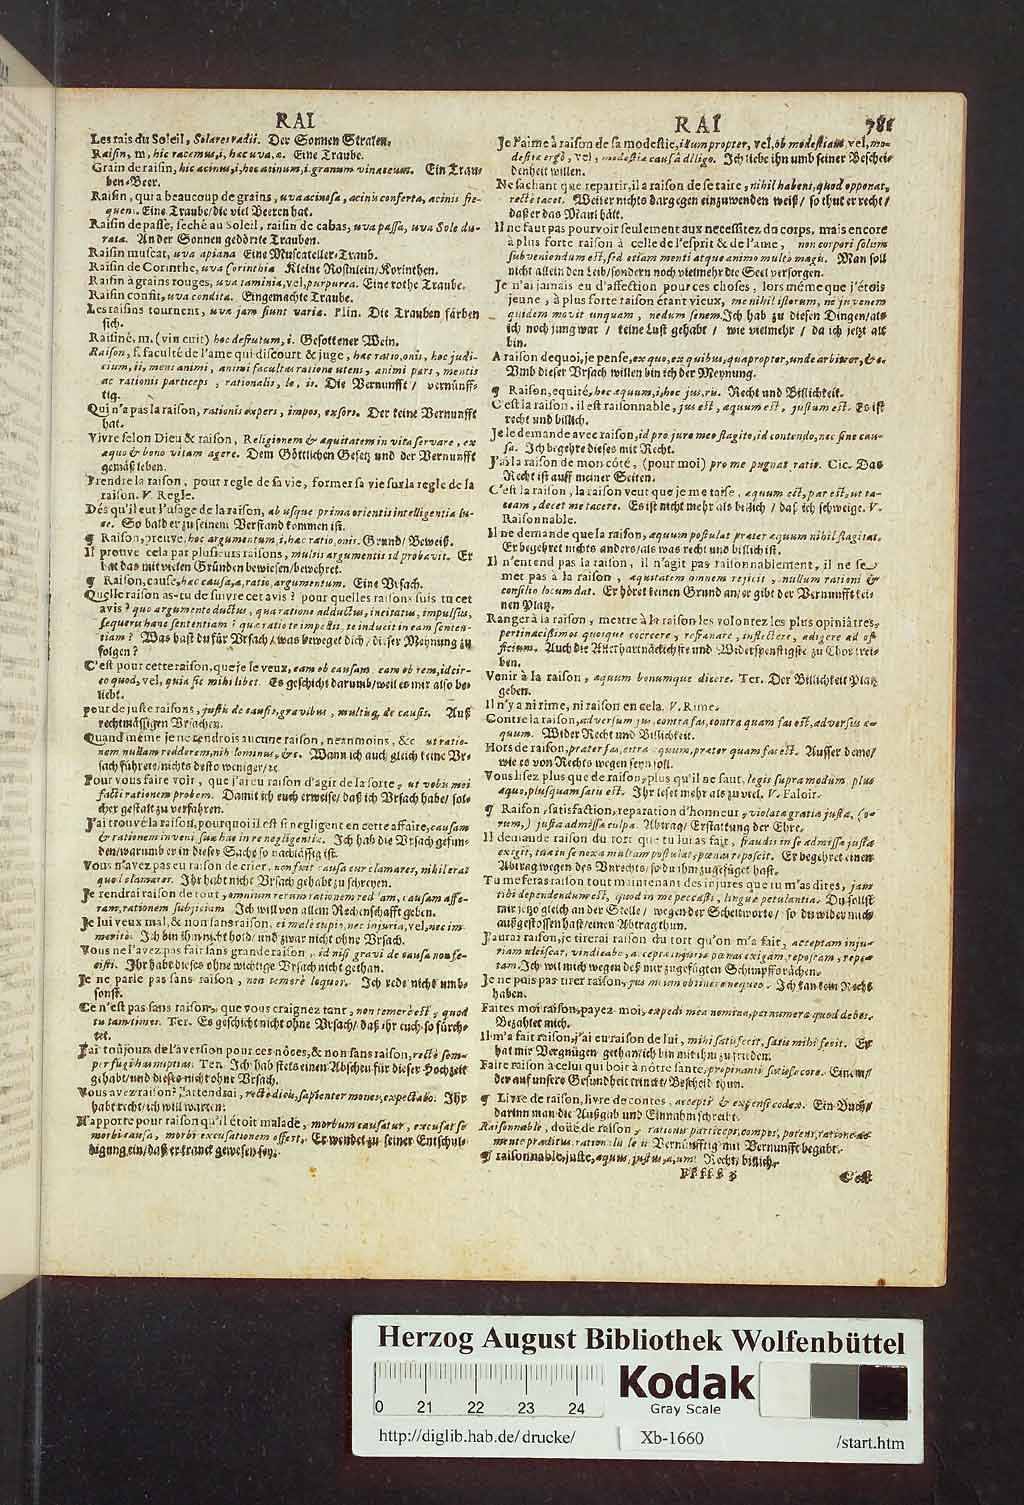 RAI
Les rais du Soleil, Solares radii. Der Sonnen Stralen.
Raisin, m, hic racemus, i, hæc uva, æ. Eine Traube.
Grain de raisin, hic acinus, i, hoc acinum, i. granum vinaceum. Ein Trau-
ben-Beer.
Raisin, qui a beaucoup de grains, uva acinosa, acinis conferta, acinis fre-
quens. Eine Traube/die viel Beeren hat.
Raisin de passe, seché au Soleil, raisin de cabas, uva passa, uva Sole du-
rata. An der Sonnen gedörrte Trauben.
Raisin muscat, uva apiana Eine Muscateller-Traub.
Raisin de Corinthe, uva Corinthia Kleine Rosinlein/Korinthen.
Raisin à grains rouges, uva taminia, vel, purpurea. Eine rothe Traube.
Raisin confit, uva condita. Eingemachte Traube.
Les raisins tournent, uvæ jam fiunt variæ. Plin. Die Trauben färben
sich.
Raisiné, m. (vin cuit) hoc defrutum, i. Gesottener Wein.
Raison, f. faculté de l'ame qui discourt & juge, hæc ratio, onis, hoc judi-
cium, ii, mens animi, animi facultas ratione utens, animi pars, mentis
ac rationis particeps, rationalis, le, is. Die Vernunfft/ vernünff-
tig.
Qui n'a pas la raison, rationis expers, impos, exsors. Der keine Vernunfft
hat.
Vivre selon Dieu & raison, Religionem & æquitatem in vita servare, ex
æquo & bono vitam agere. Dem Göttlichen Gesetz und der Vernunfft
gemäß leben.
Prendre la raison, pour regle de sa vie, former sa vie sur la regle de la
raison. V. Regle.
Dés qu'il eut l'usage de la raison, ab usque prima orientis intelligentiæ lu-
ce. So bald er zu seinem Verstand kommen ist.
¶ Raison, preuve, hoc argumentum, i, hæc ratio, onis. Grund/ Beweiß.
Il prouve cela par plusieurs raisons, multis argumentis id probavit. Er
hat das mit vielen Gründen bewiesen/bewehret.
¶ Raison, cause, hæc causa, æ, ratio, argumentum. Eine Ursach.
Quelle raison as-tu de suivre cet avis? pour quelles raisons suis tu cet
avis? quo argumento ductus, qua ratione adductus, incitatus, impulsus,
sequeris hanc sententiam? quæ ratio te impellit, te inducit in eam senten-
tiam? Was hast du für Ursach/ was beweget dich/ dieser Meynung zu
folgen?
C'est pour cette raison, que je le veux, eam ob causam, eam ob rem, idcir-
co quod, vel, quia sic mihi libet. Es geschicht darumb/weil es mir also be-
liebt.
pour de juste raisons, justis de causis, gravibus, multisq; de causis. Auß
rechtmässigen Ursachen.
Quand même je ne rendrois aucune raison, neanmoins, &c ut ratio-
nem nullam redderem, nihilominus, &c. Wann ich auch gleich keine Ur-
sach führete/nichts desto weniger/rc.
Pour vous faire voir, que j'ai eu raison d'agir de la sorte, ut vobis mei
facti rationem probem. Damit ich euch erweise/ daß ich Ursach habe/ sol-
cher gestalt zu verfahren.
J'ai trouvé la raison, pourquoi il est si negligent en cette affaire, causam
& rationem inveni suæ hac in re negligentiæ. Ich hab die Ursach gefun-
den/warumb er in dieser Sache so nachlässig ist.
Vous n'avez pas eu raison de crier, non fuit causa cur clamares, nihil erat
quod clamares. Ihr habt nicht Ursach gehabt zu schreyen.
Je rendrai raison de tout, omnium rerum rationem reddam, causam affe-
ram, rationem subjiciam Ich will von allem Rechenschafft geben.
Je lui veux mal, & non sans raison, ei male cupio, nec injuria, vel, nec im-
merito. Ich bin ihm nicht hold/ und zwar nicht ohne Ursach.
Vous ne l'avez pas fait sans grande raison, id nisi gravi de causa non fe-
cisti. Ihr habt dieses ohne wichtige Ursach nicht gethan.
Je ne parle pas sans raison, non temere loquor. Ich rede nicht umb-
sonst.
Ce n'est pas sans raison, que vous craignez tant, non temerè est, quod
tu tam times. Ter. Es geschicht nicht ohne Ursach/ daß ihr euch so fürch-
tet.
J'ai toûjours de l'aversion pour ces nôces, & non sans raison, rectè sem-
per fugi has nuptias. Ter. Ich hab stets einen Abscheu für dieser Hochzeit
gehabt/und dieses nicht ohne Ursach.
Vous avez raison? j'attendrai, rectè dicis, sapienter mones, expectabo. Ihr
habt recht/ich will warten.
R'apporte pour raison qu'il étoit malade, morbum causatur, excusat se
morbi causa, morbi excusationem offert. Er wendet zu seiner Entschul-
digung ein/daß er kranck gewesen sey.
RAI 781
Je l'aime à raison de sa modestie, illum propter, vel, ob modestiam, vel, mo-
destiæ ergò, vel, modestiæ causâ diligo. Ich liebe ihn umb seiner Beschei-
denheit willen.
Ne sachant que repartir, il a raison de se taire, nihil habens, quod opponat,
rectè tacet. Weiler nichts dargegen einzuwenden weiß/ so thut er recht/
daß er das Maul hält.
Il ne faut pas pourvoir seulement aux necessitez du corps, mais encore
à plus forte raison à celle de l'esprit & de l'ame, non corpori solum
subveniendum est, sed etiam menti atque animo multò magis. Man soll
nicht allein den Leib/sondern noch vielmehr die Seel versorgen.
Je n'ai jamais eu d'affection pour ces choses, lors même que j'étois
jeune, à plus forte raison étant vieux, me nihil istorum, ne juvenem
quidem movit unquam, nedum senem. Ich hab zu diesen Dingen/als
ich noch jung war/ keine Lust gehabt/ wie vielmehr/ da ich jetzt alt
bin.
A raison dequoi, je pense, ex quo, ex quibus, quapropter, unde arbitror, &c.
Umb dieser Ursach willen bin ich der Meynung.
¶ Raison, equité, hoc æquum, i, hoc jus, ris. Recht und Billichkeit.
C'est la raison. il est raisonnable, jus est, æquum est, justum est. Es ist
recht und billich.
Je le demande avec raison, id pro jure meo flagito, id contendo, nec sine cau-
sa. Ich begehre dieses mit Recht.
J'ai la raison de mon côté, (pour moi) pro me pugnat ratio. Cic. Das
Recht ist auff meiner Seiten.
C'est la raison, la raison veut que je me taise, æquum est, par est, ut ta-
ceam, decet me tacere. Es ist nicht mehr als billich/ daß ich schweige. V.
Raisonnable.
Il ne demande que la raison, æquum postulat præter æquum nihil flagitat.
Er begehret nichts anders/als was recht und billich ist.
Il n'entend pas la raison, il n'agit pas raisonnablement, il ne se
met pas à la raison, æquitatem omnem rejicit, nullum rationi &
consilio locum dat. Er höret keinen Grund an/er gibt der Vernunfft kei-
nen Platz.
Ranger à la raison, mettre à la raison les volontez les plus opiniâtres,
pertinacissimos quosque coërcere, refrænare, inflectere, adigere ad of-
ficium. Auch die Allerhartnäckichste und Widerspenstigste zu Chor trei-
ben.
Venir à la raison, æquum bonumque dicere. Ter. Der Billichkeit Platz
geben.
Il n'y a ni rime, ni raison en cela. V. Rime.
Contre la raison, adversum jus, contra fas, contra quam fas est, adversus æ-
quum. Wider Recht und Billichkeit.
Hors de raison, præter fas, extra æquum, præter quam fas est. Ausser deme/
wie es von Rechts wegen seyn soll.
Vous lisez plus que de raison, plus qu'il ne faut, legis supra modum, plus
æquo, plusquam satis est. Ihr leset mehr als zu viel. V. Faloir.
¶ Raison, satisfaction, reparation d'honneur, violatæ gratia justa, (o-
rum,) justa admissæ culpæ. Abtrag/ Erstattung der Ehre.
Il demande raison du tort que tu lui as fait, fraudis in se admissæ justa
exigit, tuæ in se noxæ multam postulat, pœnas reposcit. Er begehret einen
Abtrag wegen des Unrechts/ so du ihm zugefüget hast.
Tu me feras raison tout maintenant des injures que tu m'as dites, jam
tibi dependendum est, quod in me peccasti, linguæ petulantia. Du sollst
mir jetzo gleich an der Stelle/ wegen der Scheltworte/ so du wider mich
außgestossen hast/einen Abtrag thun.
J'aurai raison, je tirerai raison du tort qu'on m'a fait, acceptam inju-
riam ulciscar, vindicabo, acceptæ injuriæ pœnas exigam, reposcam, repe-
tam. Ich wil mich wegen deß mir zugefügten Schimpffs rächen.
Je ne puis pas tirer raison, jus meum obtinere nequeo. Ich kan kein Recht
haben.
Faites moi raison, payez moi, expedi mea nomina, pernumera quod debes.
Bezahlet mich.
Il m'a fait raison, j'ai eu raison de lui, mihi satisfecit, satis mihi fecit. Er
hat mir Vergnügen gethan/ich bin mit ihm zu frieden.
Faire raison à celui qui boit à nôtre santé, propinanti satisfacere. Einem/
der auf unsere Gesundheit trinckt/ Bescheid thun.
¶ Livre de raison, livre de contes, accepti & expensi codex. Ein Buch/
darinn man die Außgab und Einnahm schreibt.
Raisonnable, doüé de raison, rationis particeps, compos, potens, ratione ac
mente præditus, rationalis le is Vernünfftig/mit Vernunfft begabt.
¶ raisonnable, juste, æquus, justus, a, um. Recht/ billich.
Fffff 3
C'est
Herzog August Bibliothek Wolfenbüttel
0 21 22 23 24
Kodak
Gray Scale
http://diglib.hab.de/drucke/ Xb-1660 /start.htm